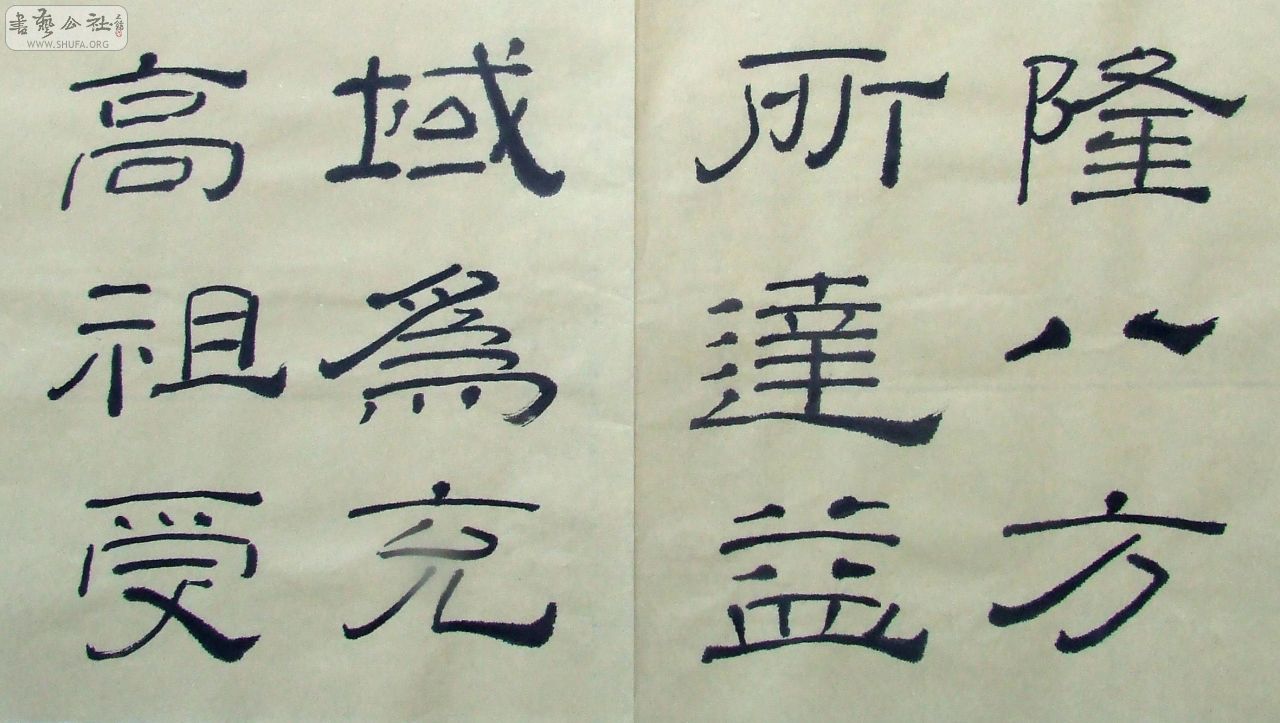 隆八方
所達益
域為充
高祖受
書藝公社
WWW.SHUFA.ORG